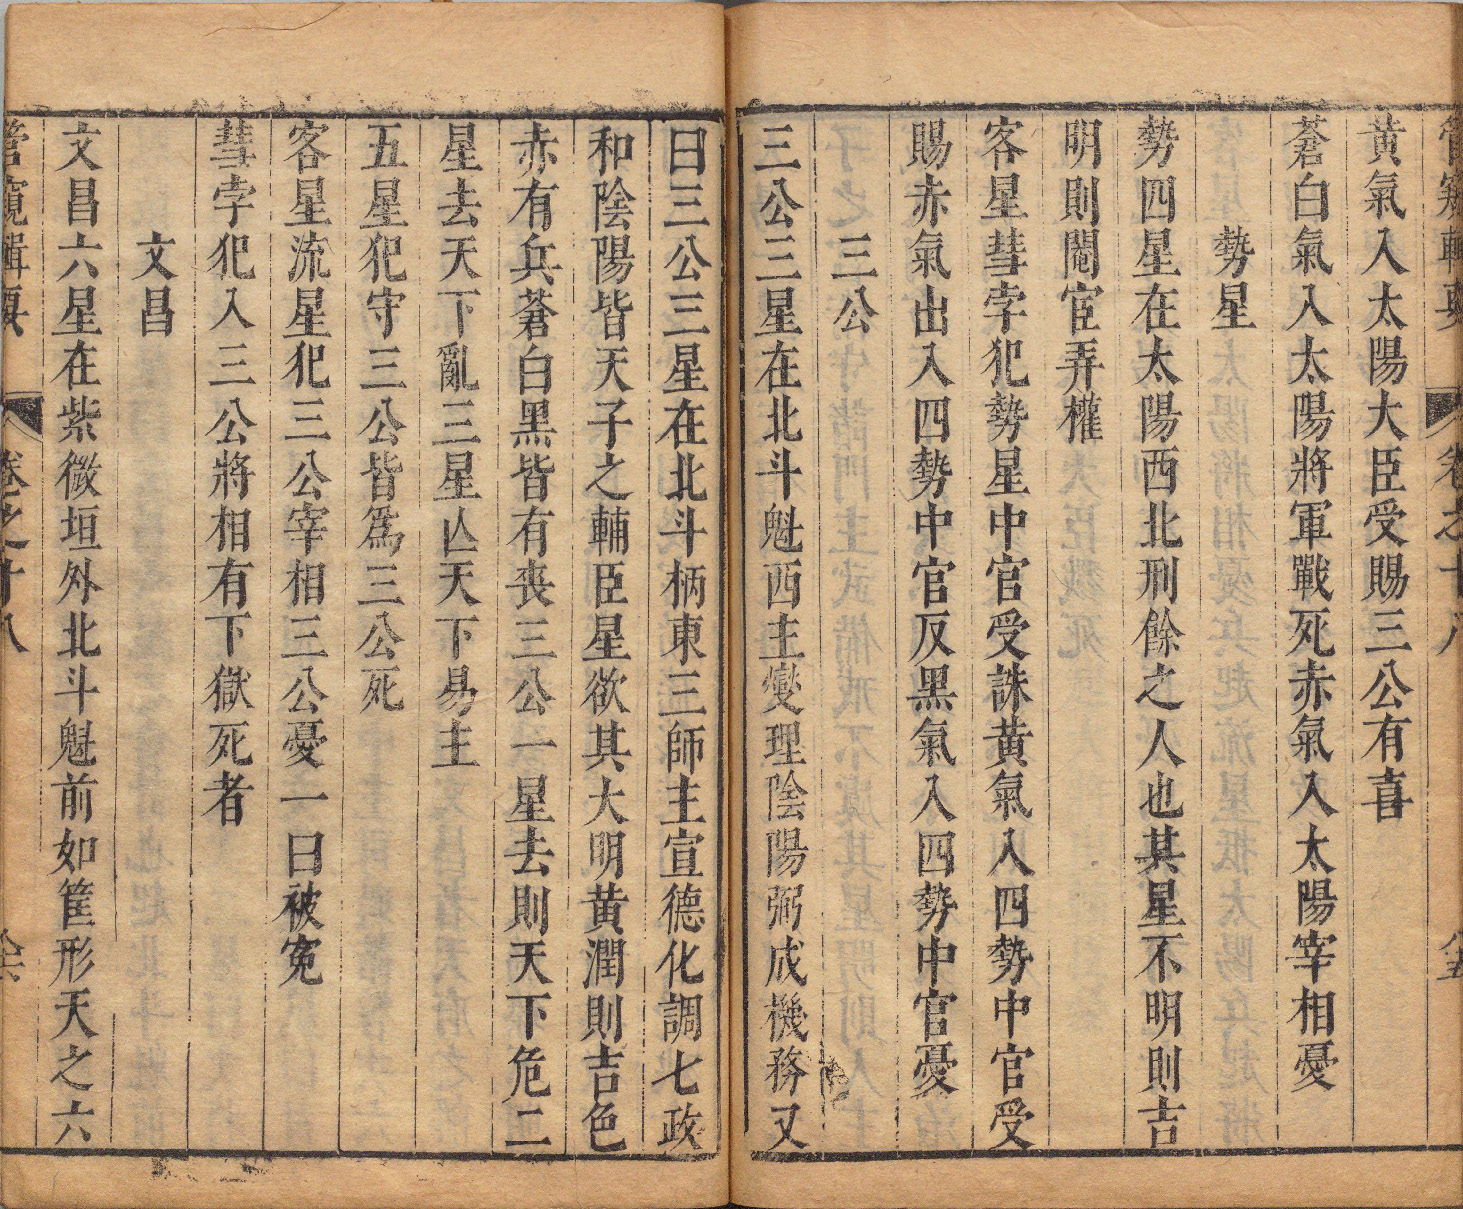 管窺輯要 卷之十八 八十五
黃氣入太陽大臣受賜三公有喜
蒼白氣入太陽將軍戰死赤氣入太陽宰相憂
勢星
勢四星在太陽西北刑餘之人也其星不明則吉
明則閹宦弄權
客星彗孛犯勢星中官受誅黃氣入四勢中官受
賜赤氣出入四勢中官反黑氣入四勢中官憂
三公
三公三星在北斗魁西主燮理陰陽弼成機務又
曰三公三星在北斗柄東三師主宣德化調七政
和陰陽皆天子之輔臣星欲其大明黃潤則吉色
赤有兵蒼白黑皆有丧三公一星去則天下危二
星去天下亂三星亾天下易主
五星犯守三公皆爲三公死
客星流星犯三公宰相三公憂一曰被寃
彗孛犯入三公將相有下獄死者
文昌
文昌六星在紫微垣外北斗魁前如筐形天之六
管窺輯要 卷之十八